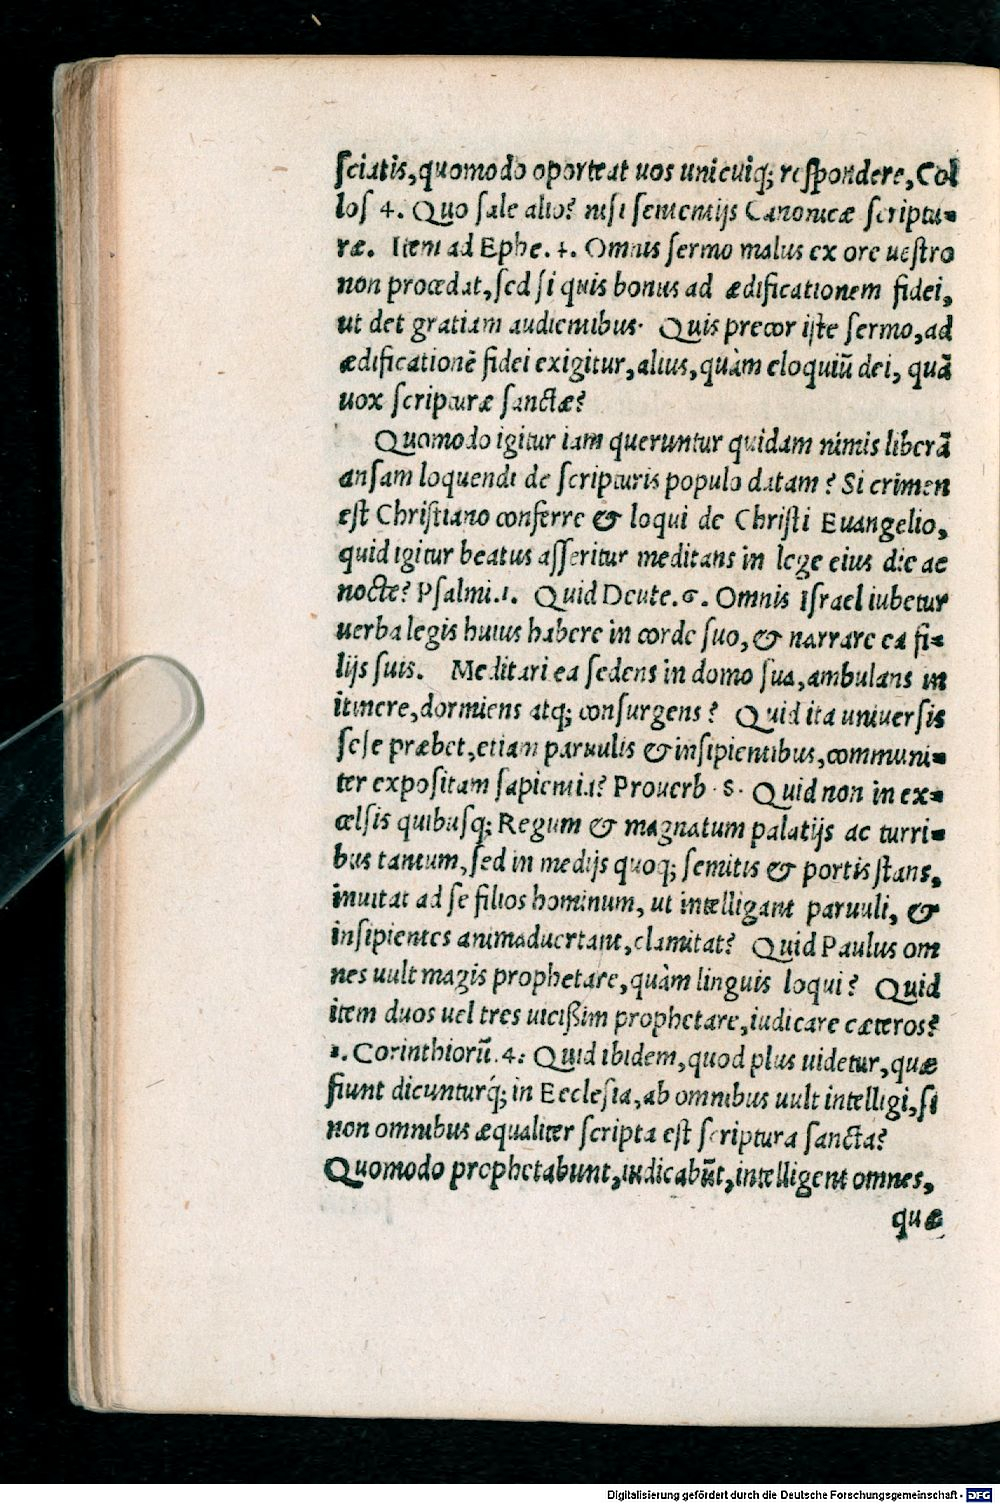 ſciatis, quomodo oporteat uos unicuiq; reſpondere, Col
loſ 4. Quo ſale alio? niſi ſententijs Canonicæ ſcriptu-
ræ. Item ad Ephe. 4. Omnis ſermo malus ex ore ueſtro
non procedat, ſed ſi quis bonus ad ædificationem fidei,
ut det gratiam audientibus. Quis precor iſte ſermo, ad
ædificationē fidei exigitur, alius, quàm eloquiū dei, quā
uox ſcripturæ ſanctæ?
Quomodo igitur iam queruntur quidam nimis liberā
anſam loquendi de ſcripturis populo datam? Si crimen
eſt Chriſtiano conferre & loqui de Chriſti Euangelio,
quid igitur beatus aſſeritur meditans in lege eius die ac
nocte? Pſalmi.1. Quid Deute.6. Omnis Iſrael iubetur
uerba legis huius habere in corde ſuo, & narrare ea fi-
lijs ſuis. Meditari ea ſedens in domo ſua, ambulans in
itinere, dormiens atq; conſurgens? Quid ita uniuerſis
ſeſe præbet, etiam paruulis & inſipientibus, communi-
ter expoſitam ſapientia? Prouerb. 8. Quid non in ex-
cœlſis quibuſq; Regum & magnatum palatijs ac turri-
bus tantum, ſed in medijs quoq; ſemitis & portis ſtans,
inuitat ad ſe filios hominum, ut intelligant paruuli, &
inſipientes animaduertant, clamitat? Quid Paulus om
nes uult magis prophetare, quàm linguis loqui? Quid
item duos uel tres uiciſſim prophetare, iudicare cæteros?
1. Corinthiorū.4. Quid ibidem, quod plus uidetur, quæ
fiunt dicunturq́; in Eccleſia, ab omnibus uult intelligi, ſi
non omnibus æqualiter ſcripta eſt ſcriptura ſancta?
Quomodo prophetabunt, iudicabūt, intelligent omnes,
quæ
Digitalisierung gefördert durch die Deutsche Forschungsgemeinschaft - DFG